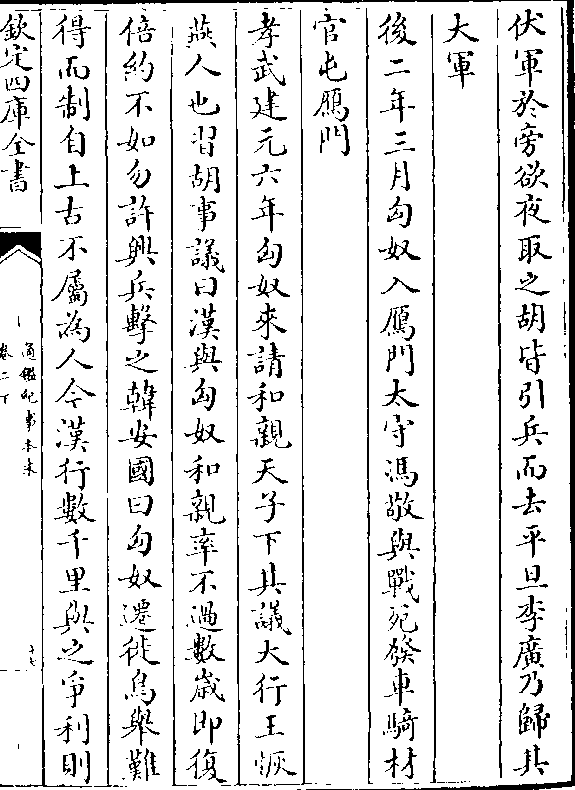 伏軍於旁欲夜取之胡皆引兵而去平旦李廣乃歸其
大軍
後二年三月匈奴入鴈門太守馮敬與戰死發車騎材
官屯鴈門
孝武建元六年匈奴來請和親天子下其議大行王恢
燕人也習胡事議曰漢與匈奴和親率不過數歳即復
倍約不如勿許興兵擊之韓安國曰匈奴遷徙鳥舉難
得而制自上古不屬為人今漢行數千里與之爭利則
欽定四庫全書
通鑑紀事本末
卷二下
十七